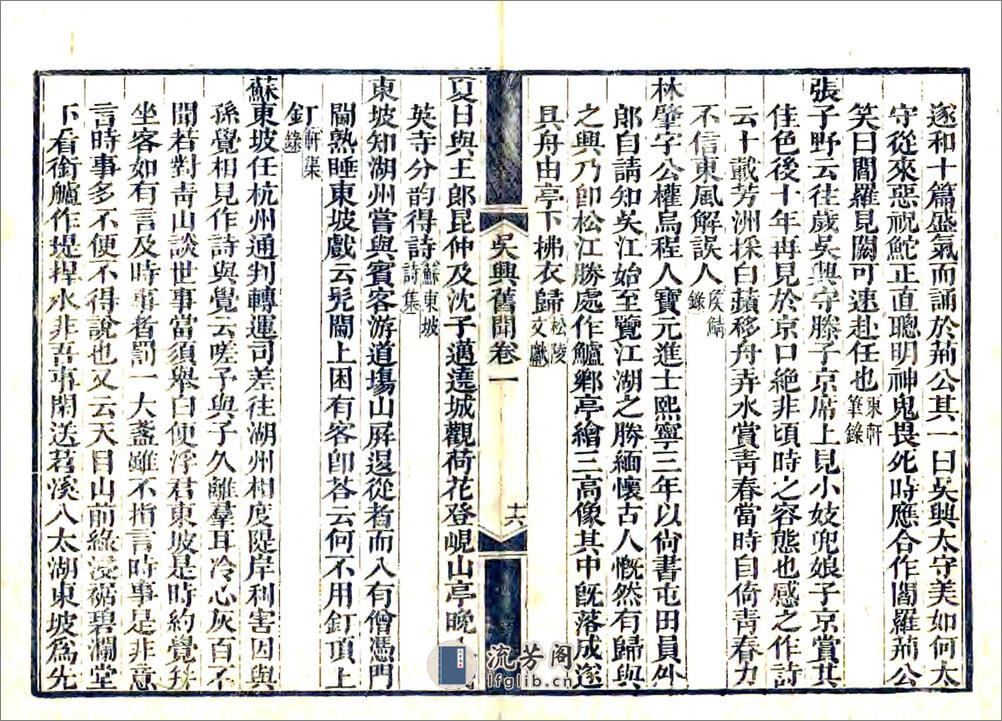 遂和十篇盛氣而誦於荊公其一曰吳興太守美如何太
守從來惡祝鮀正直聰明神鬼畏死時應合作閻羅荊公
笑曰閻羅見闕可速赴任也東軒筆錄
張子野云往歲吳興守滕子京席上見小妓兜娘子京賞其
佳色後十年再見於京口絕非頃時之容態也感之作詩
云十載芳洲採白蘋移舟弄水賞青春當時自倚青春力
不信東風解誤人侯鯖錄
林肇字公權烏程人寶元進士熙寧三年以尙書屯田員外
郎自請知吳江始至覽江湖之勝緬懷古人慨然有歸與
之興乃卽松江勝處作鱸鄉亭繪三高像其中旣落成遂
具舟由亭下拂衣歸松陵文獻
吳興舊聞卷一
十六
夏日與王郎昆仲及沈子邁遶城觀荷花登峴山亭晚入
英寺分韵得詩蘇東坡詩集
東坡知湖州嘗與賓客游道場山屏退從者而入有僧憑門
閫熟睡東坡戲云髡閫上困有客卽荅云何不用釘頂上
釘軒集錄
蘇東坡任杭州通判轉運司差往湖州相度隄岸利害因與
孫覺相見作詩與覺云嗟予與子久離羣耳冷心灰百不
聞若對靑山談世事當須舉白便浮君東坡是時約覺并
坐客如有言及時事者罰一大盞雖不指言時事是非意
言時事多不便不得說也又云天目山前綠浸裾碧瀾堂
下看銜艫作堤捍水非吾事閑送苕溪入太湖東坡爲先
流芳阁
lfglib.cn